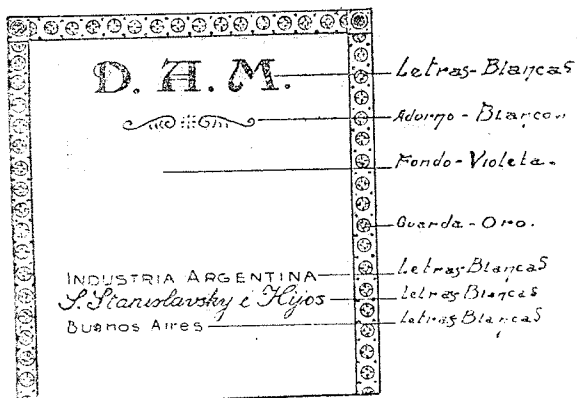 D. A. M. Letras-Blancas
Adorno - Blanco.
Fondo-Violeta.
Guarda-Oro.
INDUSTRIA ARGENTINA Letras-Blancas
S. Stanislavsky e Hijos letras Blancas
Buenos Aires letras Blancas